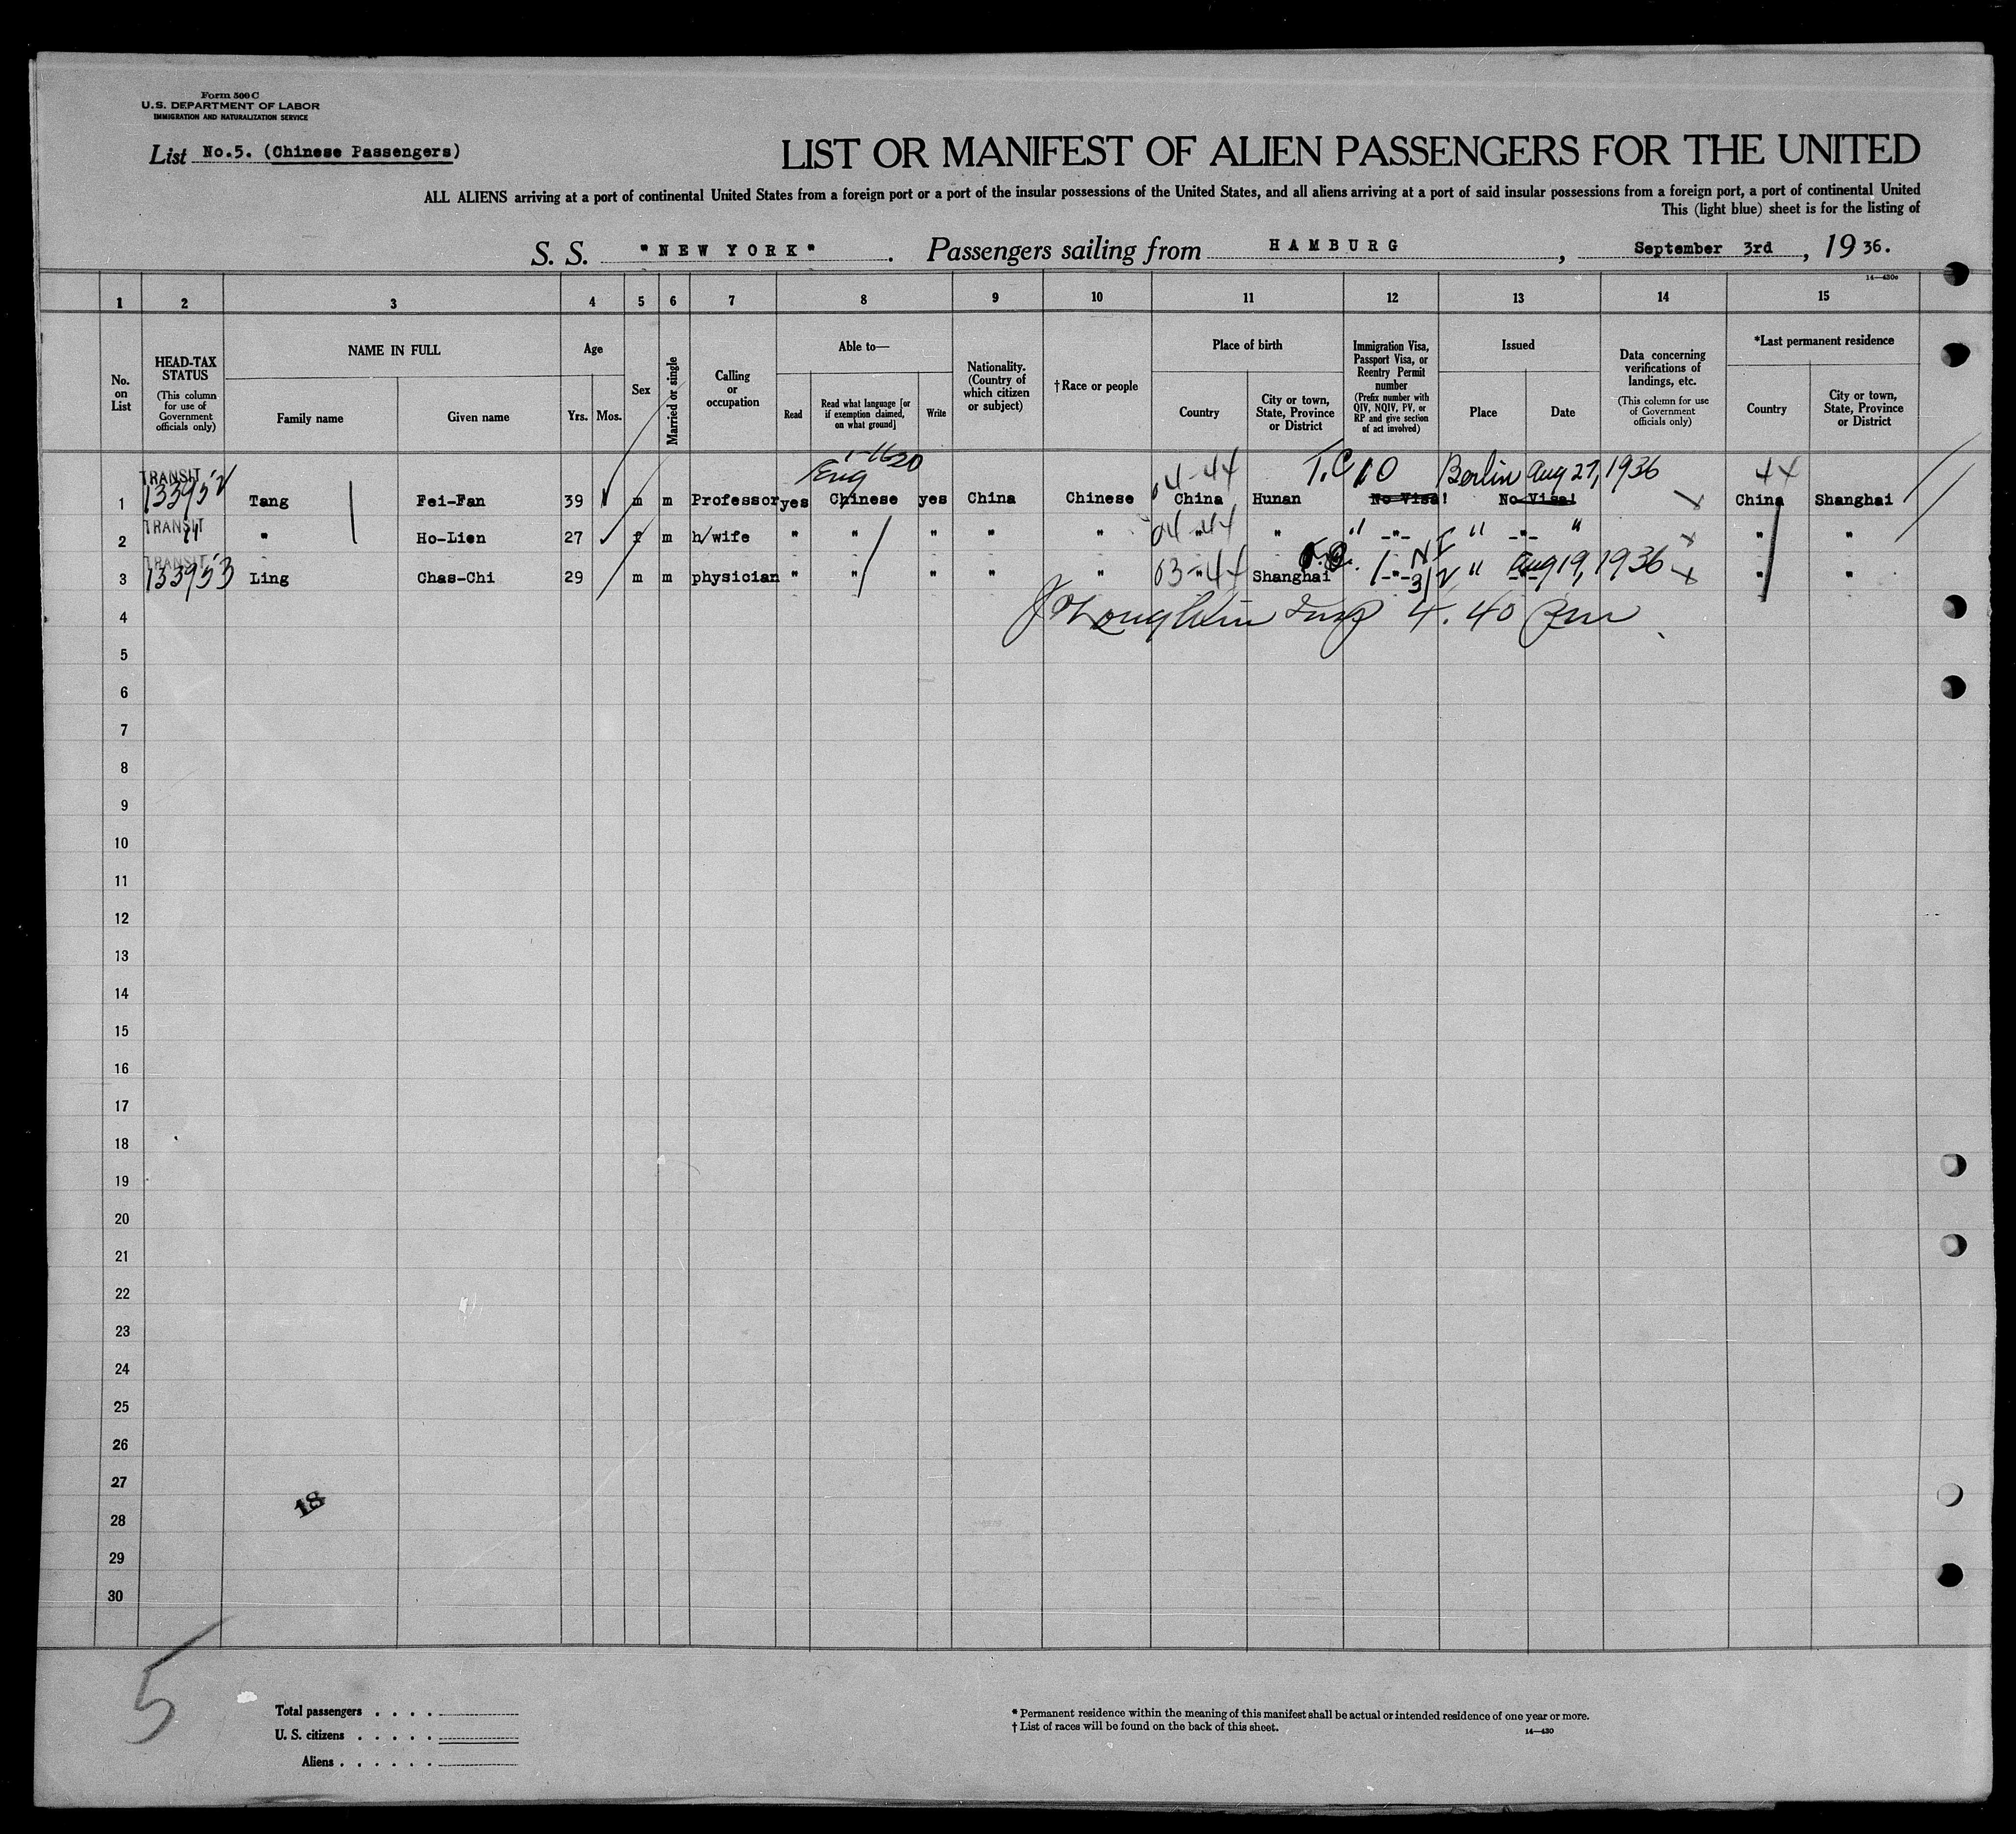 Form 500 C
U. S. DEPARTMENT OF LABOR
IMMIGRATION AND NATURALIZATION SERVICE
List No.5. (Chinese Passengers)
LIST OR MANIFEST OF ALIEN PASSENGERS FOR THE UNITED
ALL ALIENS arriving at a port of continental United States from a foreign port or a port of the insular possessions of the United States, and all aliens arriving at a port of said insular possessions from a foreign port, a port of continental United
This (light blue) sheet is for the listing of
S. S. "NEW YORK". Passengers sailing from HAMBURG, September 3rd, 1936.
14—430c
1 2 3 4 5 6 7 8 9 10 11 12 13 14 15
No. on List
HEAD-TAX STATUS (This column for use of Government officials only)
NAME IN FULL
Family name
Given name
Age
Yrs. Mos.
Sex
Married or single
Calling or occupation
Able to—
Read
Read what language [or if exemption claimed, on what ground]
Write
Nationality. (Country of which citizen or subject)
†Race or people
Place of birth
Country
City or town, State, Province or District
Immigration Visa, Passport Visa, or Reentry Permit number (Prefix number with QIV, NQIV, PV, or RP and give section of act involved)
Issued
Place
Date
Data concerning verifications of landings, etc. (This column for use of Government officials only)
*Last permanent residence
Country
City or town, State, Province or District
TRANSIT Eng 1-1620 04-44 T.C 10 Berlin Aug 27, 1936 44
1 Tang Fei-Fan 39 m m Professor yes Chinese yes China Chinese China Hunan No Visa! No Visa! China Shanghai
TRANSIT 04-44
2 " Ho-Lien 27 f m h/wife " " " " " " " " -"- " -"- " " "
TRANSIT
3 133953 Ling Chas-Chi 29 m m physician " " " " " 03-44 " Shanghai -"- " Aug 19, 1936 " "
4 4.40 pm
5
6
7
8
9
10
11
12
13
14
15
16
17
18
19
20
21
22
23
24
25
26
27
28
29
30
18
5
Total passengers . . . .
U. S. citizens . . . . .
Aliens . . . . . .
* Permanent residence within the meaning of this manifest shall be actual or intended residence of one year or more.
† List of races will be found on the back of this sheet.
14—430